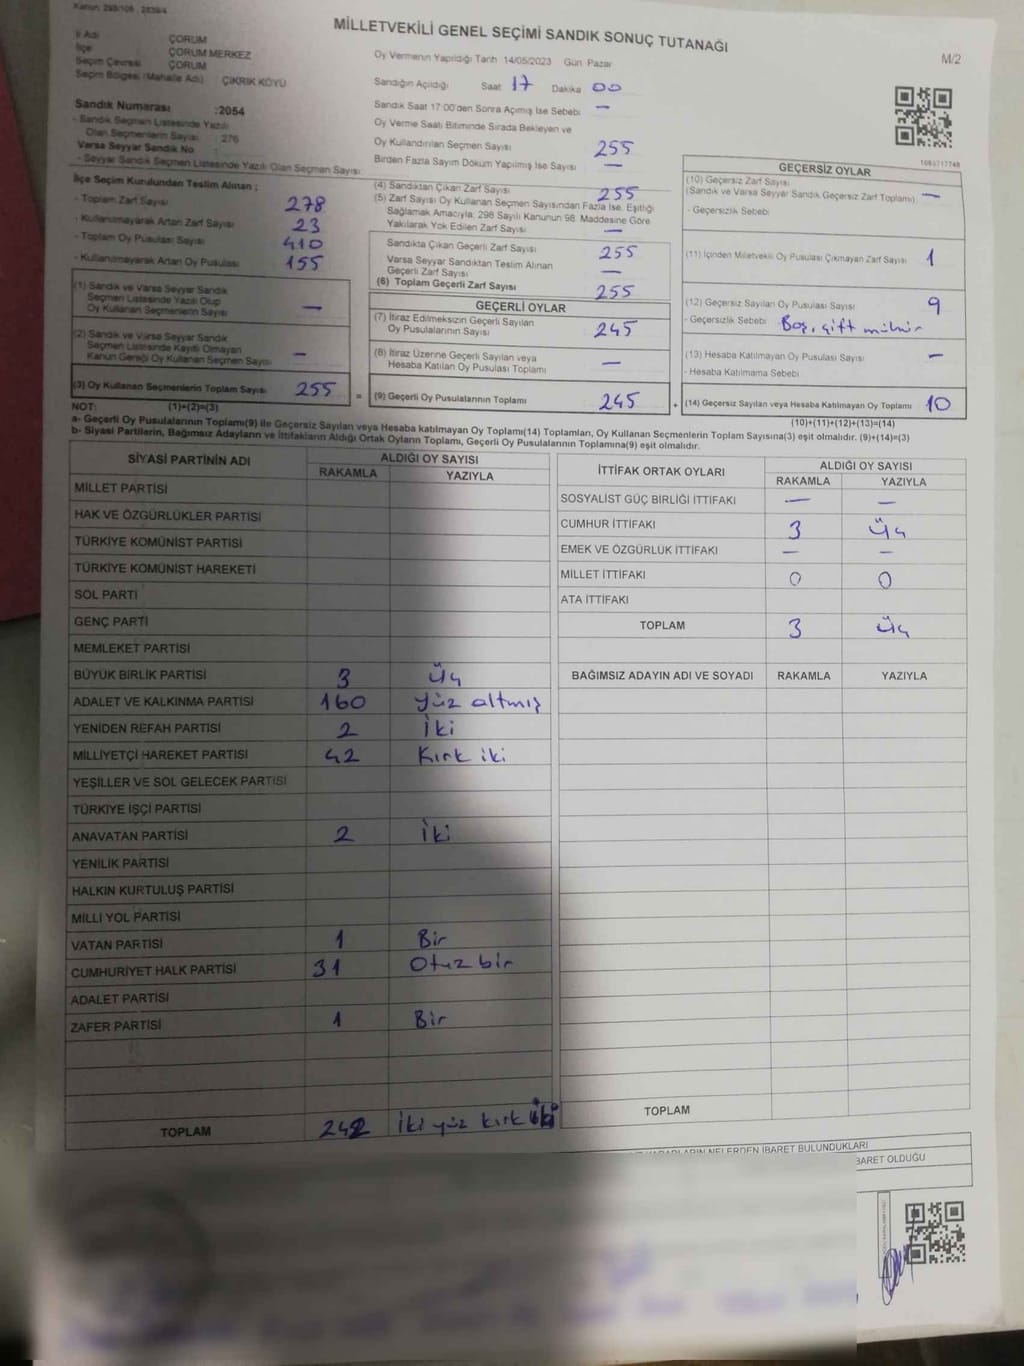 Kanun: 298/105 , 2839/4
MİLLETVEKİLİ GENEL SEÇİMİ SANDIK SONUÇ TUTANAĞI
M/2
İl Adı ÇORUM
İlçe ÇORUM MERKEZ
Seçim Çevresi ÇORUM
Seçim Bölgesi (Mahalle Adı) ÇIKRIK KÖYÜ
Sandık Numarası :2054
- Sandık Seçmen Listesinde Yazılı
Olan Seçmenlerin Sayısı : 276
Varsa Seyyar Sandık No
- Seyyar Sandık Seçmen Listesinde Yazılı Olan Seçmen Sayısı
Oy Vermenin Yapıldığı Tarih 14/05/2023 Gün Pazar
Sandığın Açıldığı Saat 17 Dakika 00
Sandık Saat 17 00'den Sonra Açımış İse Sebebi —
Oy Verme Saati Bitiminde Sırada Bekleyen ve
Oy Kullandırılan Seçmen Sayısı 255
Birden Fazla Sayım Döküm Yapılmış İse Sayısı —
1063717748
İlçe Seçim Kurulundan Teslim Alınan ;
- Toplam Zarf Sayısı 278
- Kullanılmayarak Artan Zarf Sayısı 23
- Toplam Oy Pusulası Sayısı 410
- Kullanılmayarak Artan Oy Pusulası 155
(1) Sandık ve Varsa Seyyar Sandık
Seçmen Listesinde Yazılı Olup
Oy Kullanan Seçmenlerin Sayısı —
(2) Sandık ve Varsa Seyyar Sandık
Seçmen Listesinde Kayıtlı Olmayan
Kanun Gereği Oy Kullanan Seçmen Sayısı —
(3) Oy Kullanan Seçmenlerin Toplam Sayısı 255 =
(4) Sandıktan Çıkan Zarf Sayısı 255
(5) Zarf Sayısı Oy Kullanan Seçmen Sayısından Fazla İse, Eşitliği
Sağlamak Amacıyla; 298 Sayılı Kanunun 98. Maddesine Göre
Yakılarak Yok Edilen Zarf Sayısı —
Sandıkta Çıkan Geçerli Zarf Sayısı 255
Varsa Seyyar Sandıktan Teslim Alınan
Geçerli Zarf Sayısı —
(6) Toplam Geçerli Zarf Sayısı 255
GEÇERLİ OYLAR
(7) İtiraz Edilmeksizin Geçerli Sayılan
Oy Pusulalarının Sayısı 245
(8) İtiraz Üzerine Geçerli Sayılan veya
Hesaba Katılan Oy Pusulası Toplamı —
(9) Geçerli Oy Pusulalarının Toplamı 245 +
GEÇERSİZ OYLAR
(10) Geçersiz Zarf Sayısı
(Sandık ve Varsa Seyyar Sandık Geçersiz Zarf Toplamı) —
- Geçersizlik Sebebi
(11) İçinden Milletvekili Oy Pusulası Çıkmayan Zarf Sayısı 1
(12) Geçersiz Sayılan Oy Pusulası Sayısı 9
- Geçersizlik Sebebi Boş, çift mühür
(13) Hesaba Katılmayan Oy Pusulası Sayısı —
- Hesaba Katılmama Sebebi
(14) Geçersiz Sayılan veya Hesaba Katılmayan Oy Toplamı 10
NOT: (1)+(2)=(3) (10)+(11)+(12)+(13)=(14)
a- Geçerli Oy Pusulalarının Toplamı(9) ile Geçersiz Sayılan veya Hesaba katılmayan Oy Toplamı(14) Toplamları, Oy Kullanan Seçmenlerin Toplam Sayısına(3) eşit olmalıdır. (9)+(14)=(3)
b- Siyasi Partilerin, Bağımsız Adayların ve İttifakların Aldığı Ortak Oyların Toplamı, Geçerli Oy Pusulalarının Toplamına(9) eşit olmalıdır.
SİYASİ PARTİNİN ADI ALDIĞI OY SAYISI
RAKAMLA YAZIYLA
MİLLET PARTİSİ
HAK VE ÖZGÜRLÜKLER PARTİSİ
TÜRKİYE KOMÜNİST PARTİSİ
TÜRKİYE KOMÜNİST HAREKETİ
SOL PARTİ
GENÇ PARTİ
MEMLEKET PARTİSİ
BÜYÜK BİRLİK PARTİSİ 3 Üç
ADALET VE KALKINMA PARTİSİ 160 yüz altmış
YENİDEN REFAH PARTİSİ 2 İki
MİLLİYETÇİ HAREKET PARTİSİ 42 Kırk iki
YEŞİLLER VE SOL GELECEK PARTİSİ
TÜRKİYE İŞÇİ PARTİSİ
ANAVATAN PARTİSİ 2 İki
YENİLİK PARTİSİ
HALKIN KURTULUŞ PARTİSİ
MİLLİ YOL PARTİSİ
VATAN PARTİSİ 1 Bir
CUMHURİYET HALK PARTİSİ 31 Otuz bir
ADALET PARTİSİ
ZAFER PARTİSİ 1 Bir
TOPLAM 242 İki yüz kırk iki
İTTİFAK ORTAK OYLARI ALDIĞI OY SAYISI
RAKAMLA YAZIYLA
SOSYALİST GÜÇ BİRLİĞİ İTTİFAKI — —
CUMHUR İTTİFAKI 3 Üç
EMEK VE ÖZGÜRLÜK İTTİFAKI — —
MİLLET İTTİFAKI 0 0
ATA İTTİFAKI
TOPLAM 3 Üç
BAĞIMSIZ ADAYIN ADI VE SOYADI RAKAMLA YAZIYLA
TOPLAM
NELERDEN İBARET BULUNDUKLARI
OLDUĞU